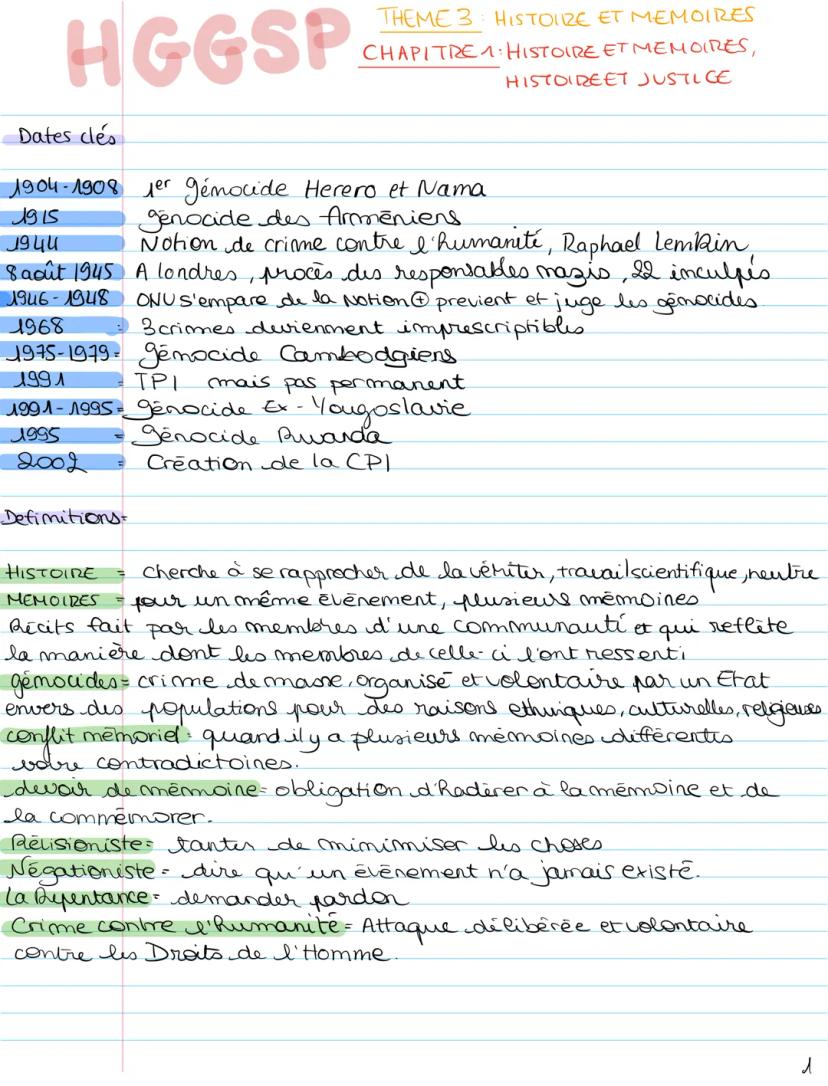 HGGSP
THEME 3 : HISTOIRE ET MEMOIRES
CHAPITRE 1 : HISTOIRE ET MEMOIRES,
HISTOIRE ET JUSTICE
Dates clés
1904-1908 1er génocide Herero et Nama
1915 génocide des Arméniens
1944 Notion de crime contre l'humanité, Raphael Lemkin
8 août 1945 A londres, procès des responsables nazis, 22 inculpés
1946-1948 ONU s'empare de la Notion ⊕ previent et juge les génocides
1968 : 3 crimes deviennent imprescriptibles
1975-1979 = génocide Cambodgiens
1991 = TPI mais pas permanent
1991-1995 = génocide Ex-Yougoslavie
1995 = génocide Rwanda
2002 = Création de la CPI
Definitions =
HISTOIRE = cherche à se rapprocher de la vériter, travail scientifique, neutre
MEMOIRES = pour un même événement, plusieurs mémoires
Récits fait par les membres d'une communauté et qui reflète
la manière dont les membres de celle-ci l'ont ressenti
génocides = crime de masse, organisé et volontaire par un Etat
envers des populations pour des raisons ethniques, culturelles, religieuses
conflit mémoriel = quand il y a plusieurs mémoires différentes
voire contradictoires.
devoir de mémoire = obligation d'hadérer à la mémoire et de
la commémorer.
Révisioniste = tanter de minimiser les choses
Négationiste = dire qu'un événement n'a jamais existé.
La Repentance = demander pardon
Crime contre l'humanité = Attaque délibérée et volontaire
contre les Droits de l'Homme.
1